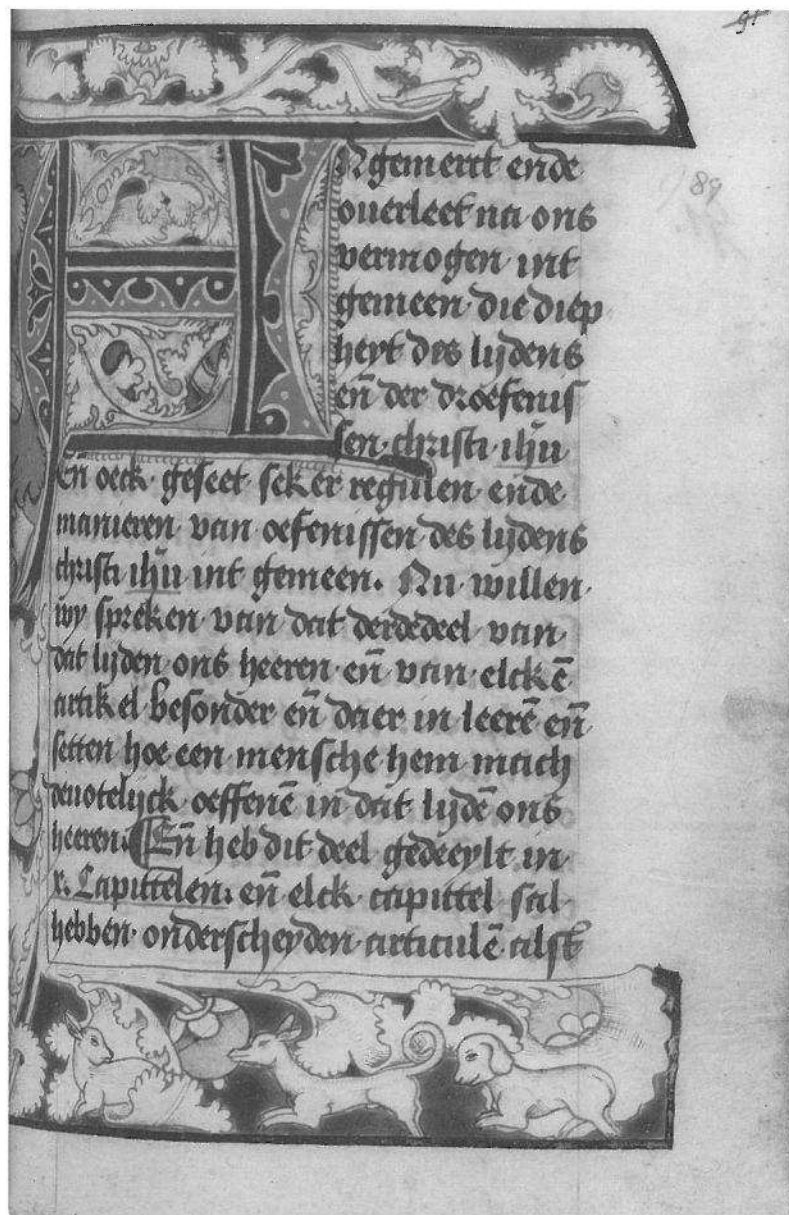 91
89
ANgemerct ende
ouerleet na ons
vermogen int
gemeen die diep
heyt des lijdens
eñ der droefenis
sen christi ihū
Eñ oeck geseet seker regulen ende
manieren van oefenissen des lijdens
christi ihū int gemeen. Nu willen
wy spreken van dat derdedeel van
dat lijden ons heeren eñ van elckē
artikel besonder eñ daer in leerē eñ
setten hoe een mensche hem mach
deuotelijck oeffenē in dat lijdē ons
heeren. ¶ Eñ heb dit deel gedeeylt in
x. Capittelen. eñ elck capittel sal
hebben onderscheyden articulē alst